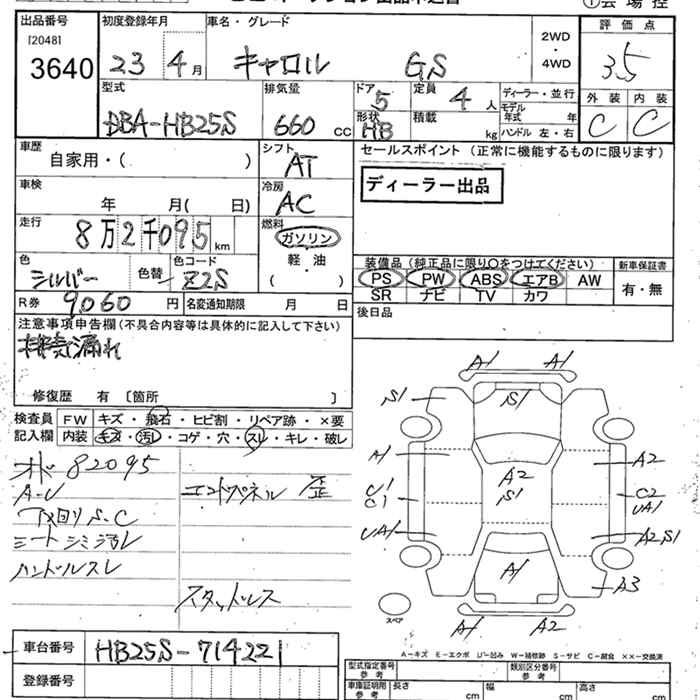 出品番号 初度登録年月 車名・グレード 評価点
[2048]
3640 23 4月 キャロル GS 2WD・4WD 3.5
型式 排気量 ドア 5 定員 4人 ディーラー・並行 外装 内装
DBA-HB25S 660 CC 形状 HB 積載 kg モデル年式 年 C C
ハンドル 左・右
車歴 自家用・( ) シフト AT セールスポイント (正常に機能するものに限ります)
車検 年 月( 日) 冷房 AC ディーラー出品
走行 8万2千095km 燃料 ガソリン
軽・油
( )
色 シルバー 色替 色コード Z2S
装備品 (純正品に限り○をつけてください) 新車保証書
PS PW ABS エアB AW 有・無
SR ナビ TV カワ
R券 9,060円 名変通知期限 月 日 後日品
注意事項申告欄(不具合内容等は具体的に記入して下さい)
排気漏れ
修復歴 有 〔箇所 〕
検査員 FW キズ・飛石・ヒビ割・リペア跡・×要
記入欄 内装 キズ・汚レ・コゲ・穴・スレ・キレ・破レ
82095
A-U エンドパネル 歪
下回りS-C
シートシミ汚レ
ハンドルスレ
スタッドレス
A1 A1
S1 S1
A1 A2
U1 A2 C2
C1 S1 UA1
UA1 A2S1
A1 A3
スペア A1 A2
車台番号 HB25S-714221
登録番号
A-キズ E-エクボ U-凹み W-補修跡 S-サビ C-腐食 ××-交換済
型式指定番号 参考 類別区分番号 参考
車庫証明用 参考 長さ cm 幅 cm 高さ cm